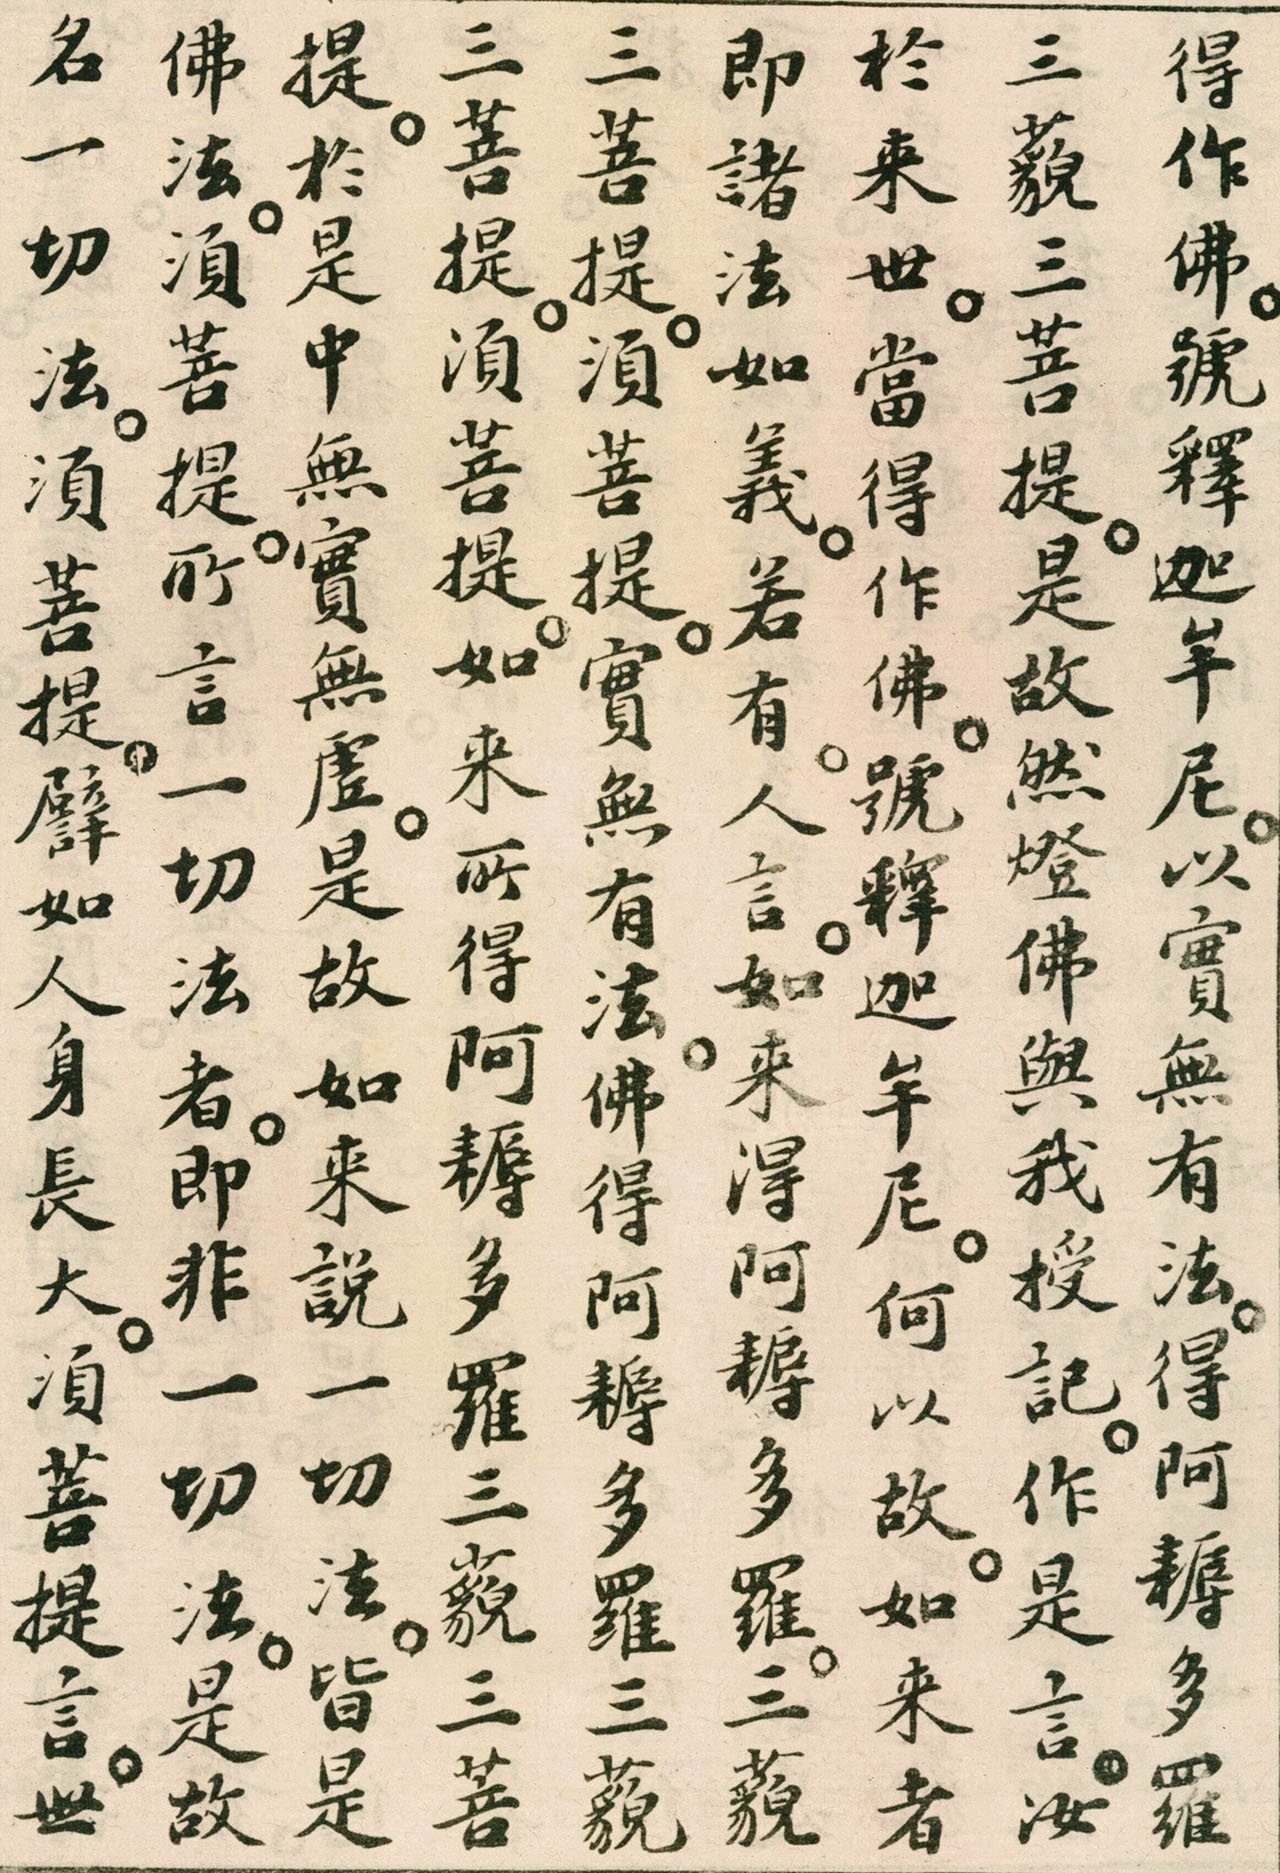 得作佛。號釋迦牟尼。以實無有法。得阿耨多羅
三藐三菩提。是故然燈佛與我授記。作是言。汝
於来世。當得作佛。號釋迦牟尼。何以故。如来者
即諸法如義。若有。人言。如。来得阿耨多羅。三藐
三菩提。須菩提。實無有法佛得阿耨多羅三藐
三菩提。須菩提。如来所得阿耨多羅三藐三菩
提。於是中無實無虛。是故如来説一切法。皆是
佛法。須菩提。所言一切法者。即非一切法。是故
名一切法。須菩提。譬如人身長大。須菩提言。世